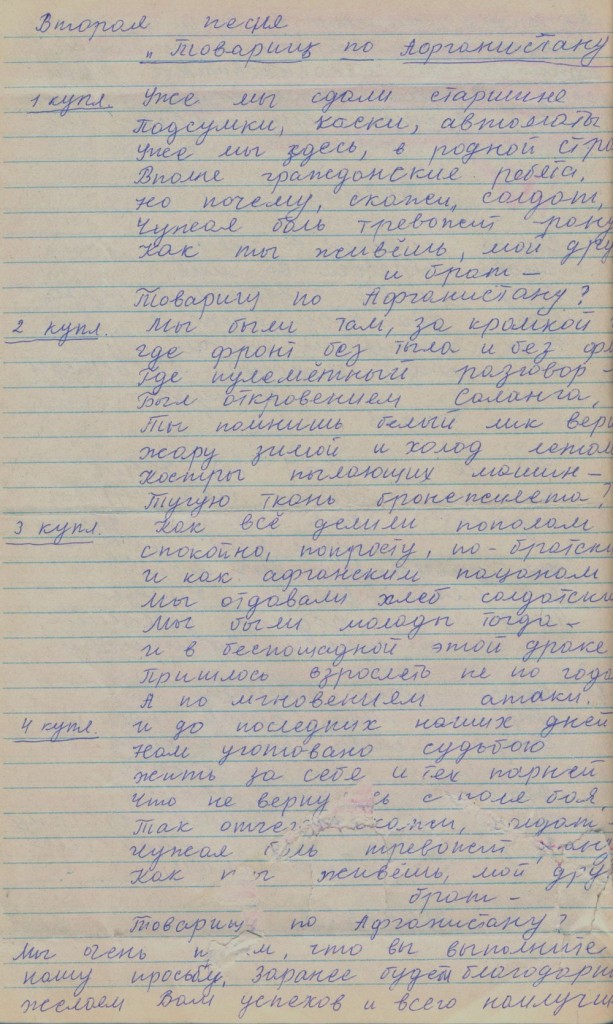 Вторая песня
„Товарищ по Афганистану
1 купл. Уже мы сдали старшине
Подсумки, каски, автоматы
Уже мы здесь, в родной стра
Вполне гражданские ребята,
но почему, скажи, солдат,
Чужая боль тревожит рану
Как ты живёшь, мой дру
и брат –
Товарищ по Афганистану?
2 купл. Мы были там, за кромкой
где фронт без тыла и без фл
Где пулемётный разговор –
Был откровением Саланга,
Ты помнишь белый лик верш
жару зимой и холод летом
Костры пылающих машин –
Тугую ткань бронежилета?
3 купл. Как всё делили пополам
спокойно, попросту, по-братски
и как афганским пацанам
Мы отдавали хлеб солдатски
Мы были молоды тогда –
и в беспощадной этой драке
Пришлось взрослеть не по года
А по мгновениям атаки.
4 купл. и до последних наших дней
Нам уготовано судьбою
жить за себя и тех парней
Что не верну сь с поля боя,
Так отче кажи, лдат –
чужая боль тревожит ран
Как т живёшь, мой друг
брат –
Товарищ по Афганистану?
Мы очень п м, что вы выполните
нашу просьбу. Заранее будем благодарн
желаем Вам успехов и всего наилучш